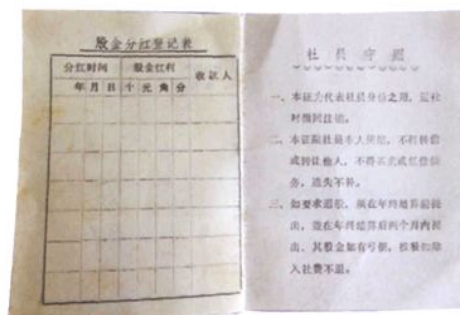 股金分红登记表
分红时间 股金红利 收证人
年 月 日 千 元 角 分
社员守则
一、本证为代表社员身份之用，退社
时缴回注销。
二、本证限社员本人使用，不得转借
或转让他人，不得买卖或抵偿债
务，遗失不补。
三、如要求退股，须在年终结算前提
出，并在年终结算后两个月内拨
出，其股金如有亏损，按股扣除
入社费不退。